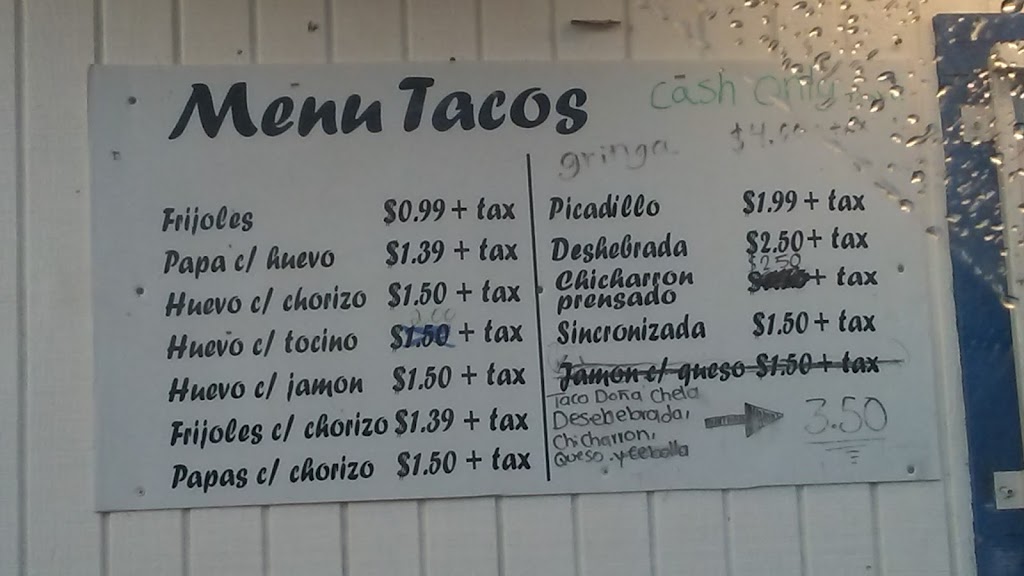 Menu Tacos
cash only
gringa
Frijoles $0.99 + tax
Papa c/ huevo $1.39 + tax
Huevo c/ chorizo $1.50 + tax
2.00
Huevo c/ tocino $1.50 + tax
Huevo c/ jamon $1.50 + tax
Frijoles c/ chorizo $1.39 + tax
Papas c/ chorizo $1.50 + tax
Picadillo $1.99 + tax
Deshebrada $2.50 + tax
$2.50
Chicharron + tax
prensado
Sincronizada $1.50 + tax
Jamon c/ queso $1.50 + tax
Taco Doña Chela
Desehebrada,
Chicharron,
Queso. y cebolla
3.50